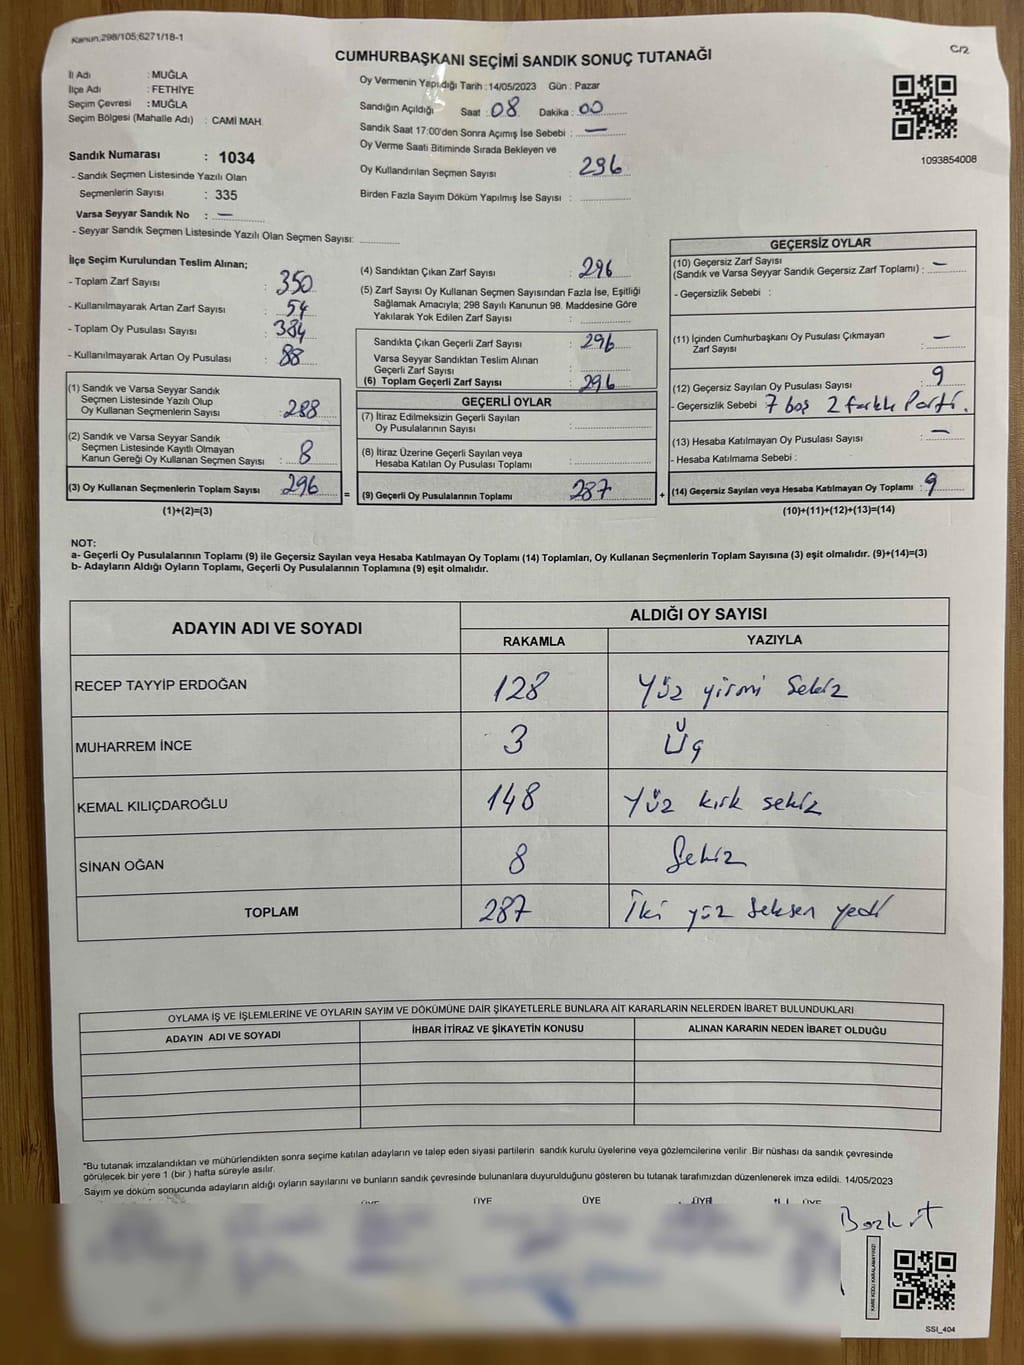 Kanun;298/105;6271/18-1
C/2
CUMHURBAŞKANI SEÇİMİ SANDIK SONUÇ TUTANAĞI
İl Adı : MUĞLA
İlçe Adı : FETHİYE
Seçim Çevresi : MUĞLA
Seçim Bölgesi (Mahalle Adı) : CAMİ MAH.
Sandık Numarası : 1034
- Sandık Seçmen Listesinde Yazılı Olan
Seçmenlerin Sayısı : 335
Varsa Seyyar Sandık No : —
- Seyyar Sandık Seçmen Listesinde Yazılı Olan Seçmen Sayısı:
Oy Vermenin Yapıldığı Tarih : 14/05/2023 Gün : Pazar
Sandığın Açıldığı Saat : 08 Dakika : 00
Sandık Saat 17:00'den Sonra Açımış İse Sebebi : —
Oy Verme Saati Bitiminde Sırada Bekleyen ve
Oy Kullandırılan Seçmen Sayısı : 296
Birden Fazla Sayım Döküm Yapılmış İse Sayısı :
1093854008
İlçe Seçim Kurulundan Teslim Alınan;
- Toplam Zarf Sayısı : 350
- Kullanılmayarak Artan Zarf Sayısı : 54
- Toplam Oy Pusulası Sayısı : 384
- Kullanılmayarak Artan Oy Pusulası : 88
(1) Sandık ve Varsa Seyyar Sandık
Seçmen Listesinde Yazılı Olup
Oy Kullanan Seçmenlerin Sayısı : 288
(2) Sandık ve Varsa Seyyar Sandık
Seçmen Listesinde Kayıtlı Olmayan
Kanun Gereği Oy Kullanan Seçmen Sayısı : 8
(3) Oy Kullanan Seçmenlerin Toplam Sayısı 296
(1)+(2)=(3)
(4) Sandıktan Çıkan Zarf Sayısı : 296
(5) Zarf Sayısı Oy Kullanan Seçmen Sayısından Fazla İse, Eşitliği
Sağlamak Amacıyla; 298 Sayılı Kanunun 98. Maddesine Göre
Yakılarak Yok Edilen Zarf Sayısı :
Sandıkta Çıkan Geçerli Zarf Sayısı : 296
Varsa Seyyar Sandıktan Teslim Alınan
Geçerli Zarf Sayısı :
(6) Toplam Geçerli Zarf Sayısı : 296
GEÇERLİ OYLAR
(7) İtiraz Edilmeksizin Geçerli Sayılan
Oy Pusulalarının Sayısı :
(8) İtiraz Üzerine Geçerli Sayılan veya
Hesaba Katılan Oy Pusulası Toplamı :
= (9) Geçerli Oy Pusulalarının Toplamı 287 +
GEÇERSİZ OYLAR
(10) Geçersiz Zarf Sayısı
(Sandık ve Varsa Seyyar Sandık Geçersiz Zarf Toplamı) : —
- Geçersizlik Sebebi :
(11) İçinden Cumhurbaşkanı Oy Pusulası Çıkmayan
Zarf Sayısı : —
(12) Geçersiz Sayılan Oy Pusulası Sayısı : 9
- Geçersizlik Sebebi 7 boş 2 farklı Parti.
(13) Hesaba Katılmayan Oy Pusulası Sayısı : —
- Hesaba Katılmama Sebebi :
(14) Geçersiz Sayılan veya Hesaba Katılmayan Oy Toplamı : 9
(10)+(11)+(12)+(13)=(14)
NOT:
a- Geçerli Oy Pusulalarının Toplamı (9) ile Geçersiz Sayılan veya Hesaba Katılmayan Oy Toplamı (14) Toplamları, Oy Kullanan Seçmenlerin Toplam Sayısına (3) eşit olmalıdır. (9)+(14)=(3)
b- Adayların Aldığı Oyların Toplamı, Geçerli Oy Pusulalarının Toplamına (9) eşit olmalıdır.
ADAYIN ADI VE SOYADI
ALDIĞI OY SAYISI
RAKAMLA YAZIYLA
RECEP TAYYİP ERDOĞAN 128 Yüz yirmi Sekiz
MUHARREM İNCE 3 Üç
KEMAL KILIÇDAROĞLU 148 Yüz kırk sekiz
SİNAN OĞAN 8 Sekiz
TOPLAM 287 İki yüz seksen yedi
OYLAMA İŞ VE İŞLEMLERİNE VE OYLARIN SAYIM VE DÖKÜMÜNE DAİR ŞİKAYETLERLE BUNLARA AİT KARARLARIN NELERDEN İBARET BULUNDUKLARI
ADAYIN ADI VE SOYADI İHBAR İTİRAZ VE ŞİKAYETİN KONUSU ALINAN KARARIN NEDEN İBARET OLDUĞU
*Bu tutanak imzalandıktan ve mühürlendikten sonra seçime katılan adayların ve talep eden siyasi partilerin sandık kurulu üyelerine veya gözlemcilerine verilir. Bir nüshası da sandık çevresinde
görülecek bir yere 1 (bir ) hafta süreyle asılır.
Sayım ve döküm sonucunda adayların aldığı oyların sayılarını ve bunların sandık çevresinde bulunanlara duyurulduğunu gösteren bu tutanak tarafımızdan düzenlenerek imza edildi. 14/05/2023
ÜYE ÜYE ÜYE ÜYE ÜYE
Bozkurt
KARE KODU KARALAMAYINIZ!
SSI_404